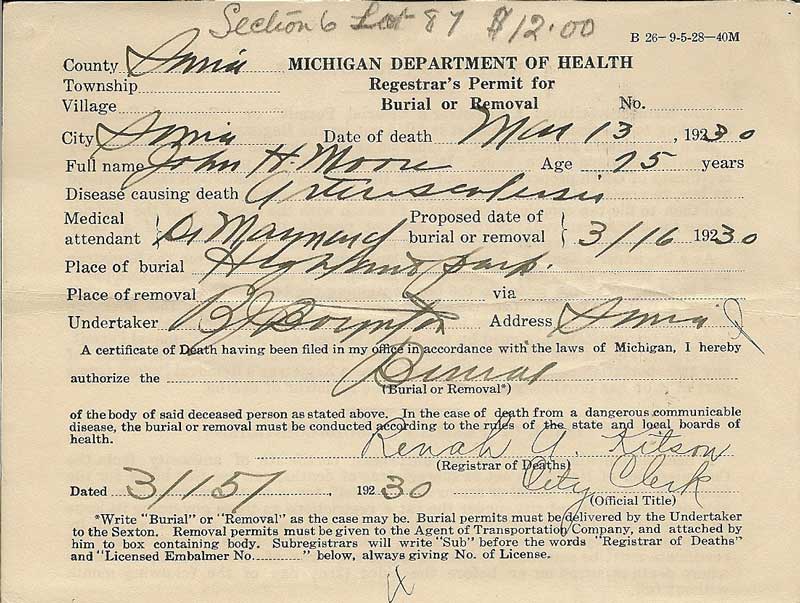 Section 6 Lot 87 $12.00
B 26—9-5-28—40M
County Ionia MICHIGAN DEPARTMENT OF HEALTH
Township Regestrar's Permit for
Village Burial or Removal No.
City Ionia Date of death Mar 13, 192330
Full name John H. Moore Age 75 years
Disease causing death Arteriosclerosis
Medical attendant Dr Maynard Proposed date of burial or removal 3/16 192330
Place of burial Highland Park.
Place of removal via
Undertaker B J Boynton Address Ionia
A certificate of Death having been filed in my office in accordance with the laws of Michigan, I hereby
authorize the Burial
(Burial or Removal*)
of the body of said deceased person as stated above. In the case of death from a dangerous communicable
disease, the burial or removal must be conducted according to the rules of the state and local boards of
health.
Renah A. Kitson
(Registrar of Deaths)
City Clerk
Dated 3/15/, 19230
(Official Title)
*Write "Burial" or "Removal" as the case may be. Burial permits must be delivered by the Undertaker
to the Sexton. Removal permits must be given to the Agent of Transportation Company, and attached by
him to box containing body. Subregistrars will write "Sub" before the words "Registrar of Deaths"
and "Licensed Embalmer No." below, always giving No. of License.